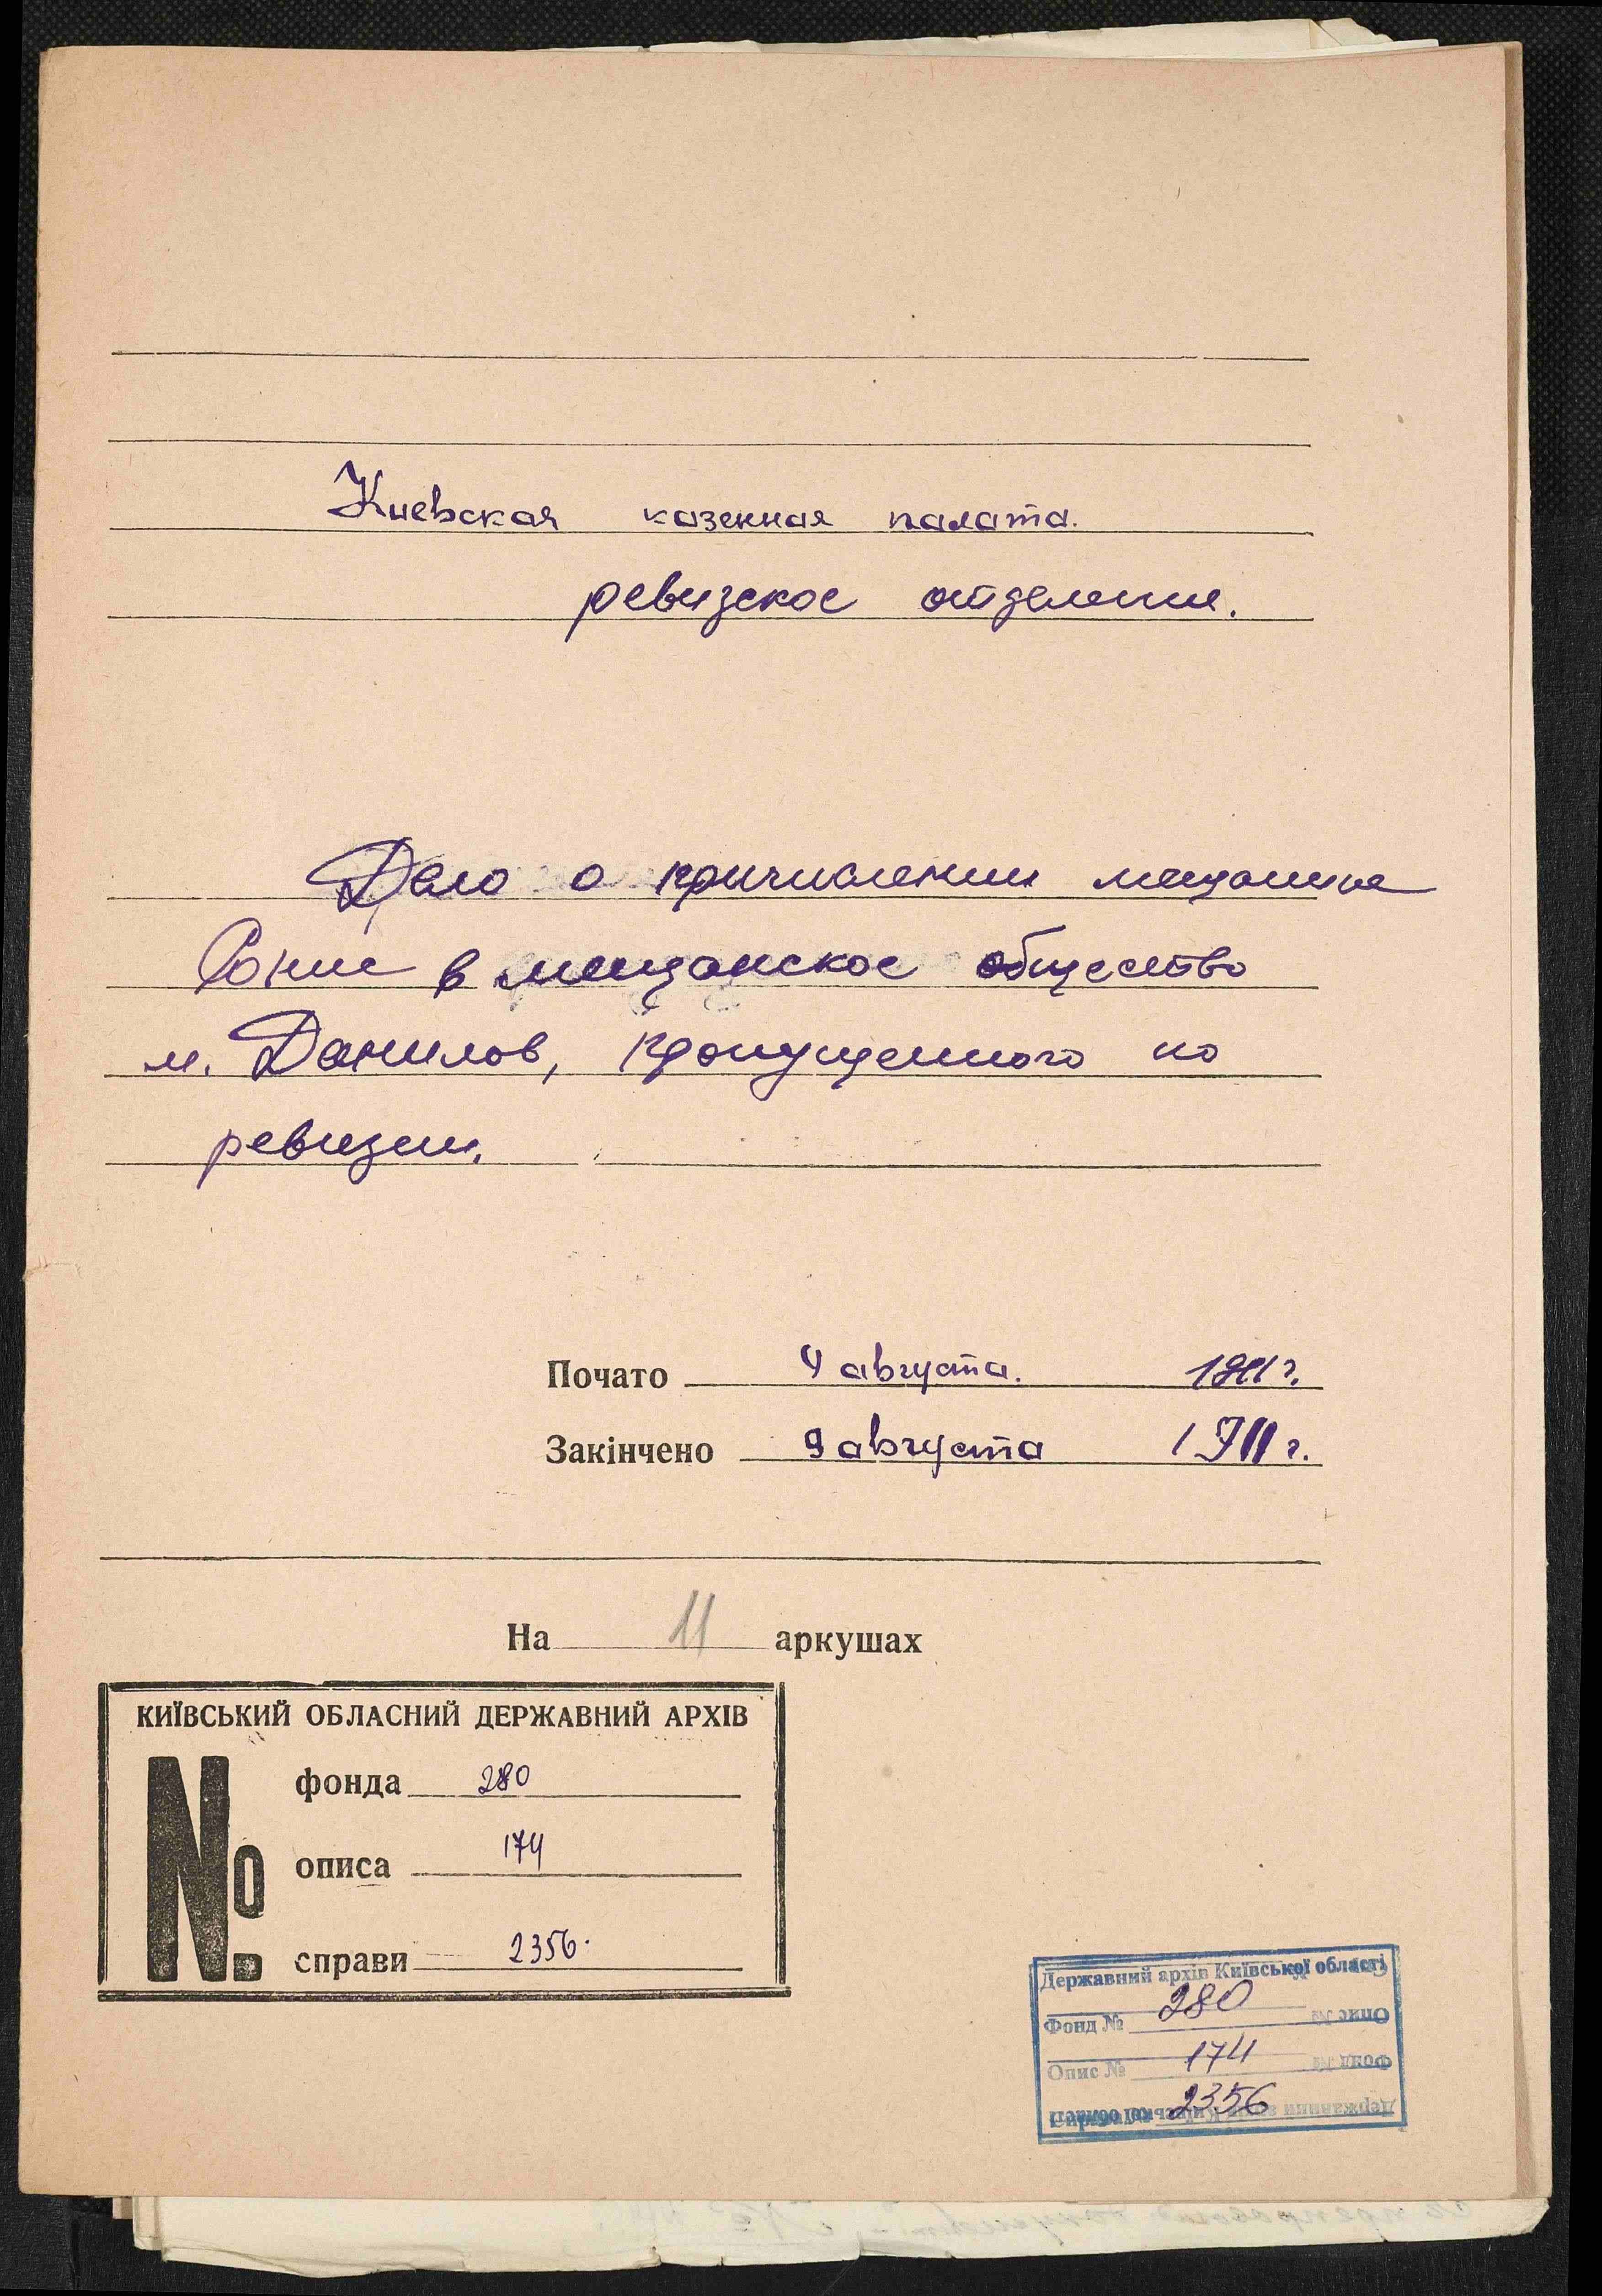 Киевская казенная палата.
ревизское отделение.
Дело о причислении мещанина
в мещанское общество
м. Данилов, пропущенного по
ревизии.
Почато 9 августа. 1911 г.
Закінчено 9 августа 1911 г.
На 11 аркушах
КИЇВСЬКИЙ ОБЛАСНИЙ ДЕРЖАВНИЙ АРХІВ
№
фонда 280
описа 174
справи 2356.
Державний архів Київської області
Фонд № 280
Опис № 174
2356